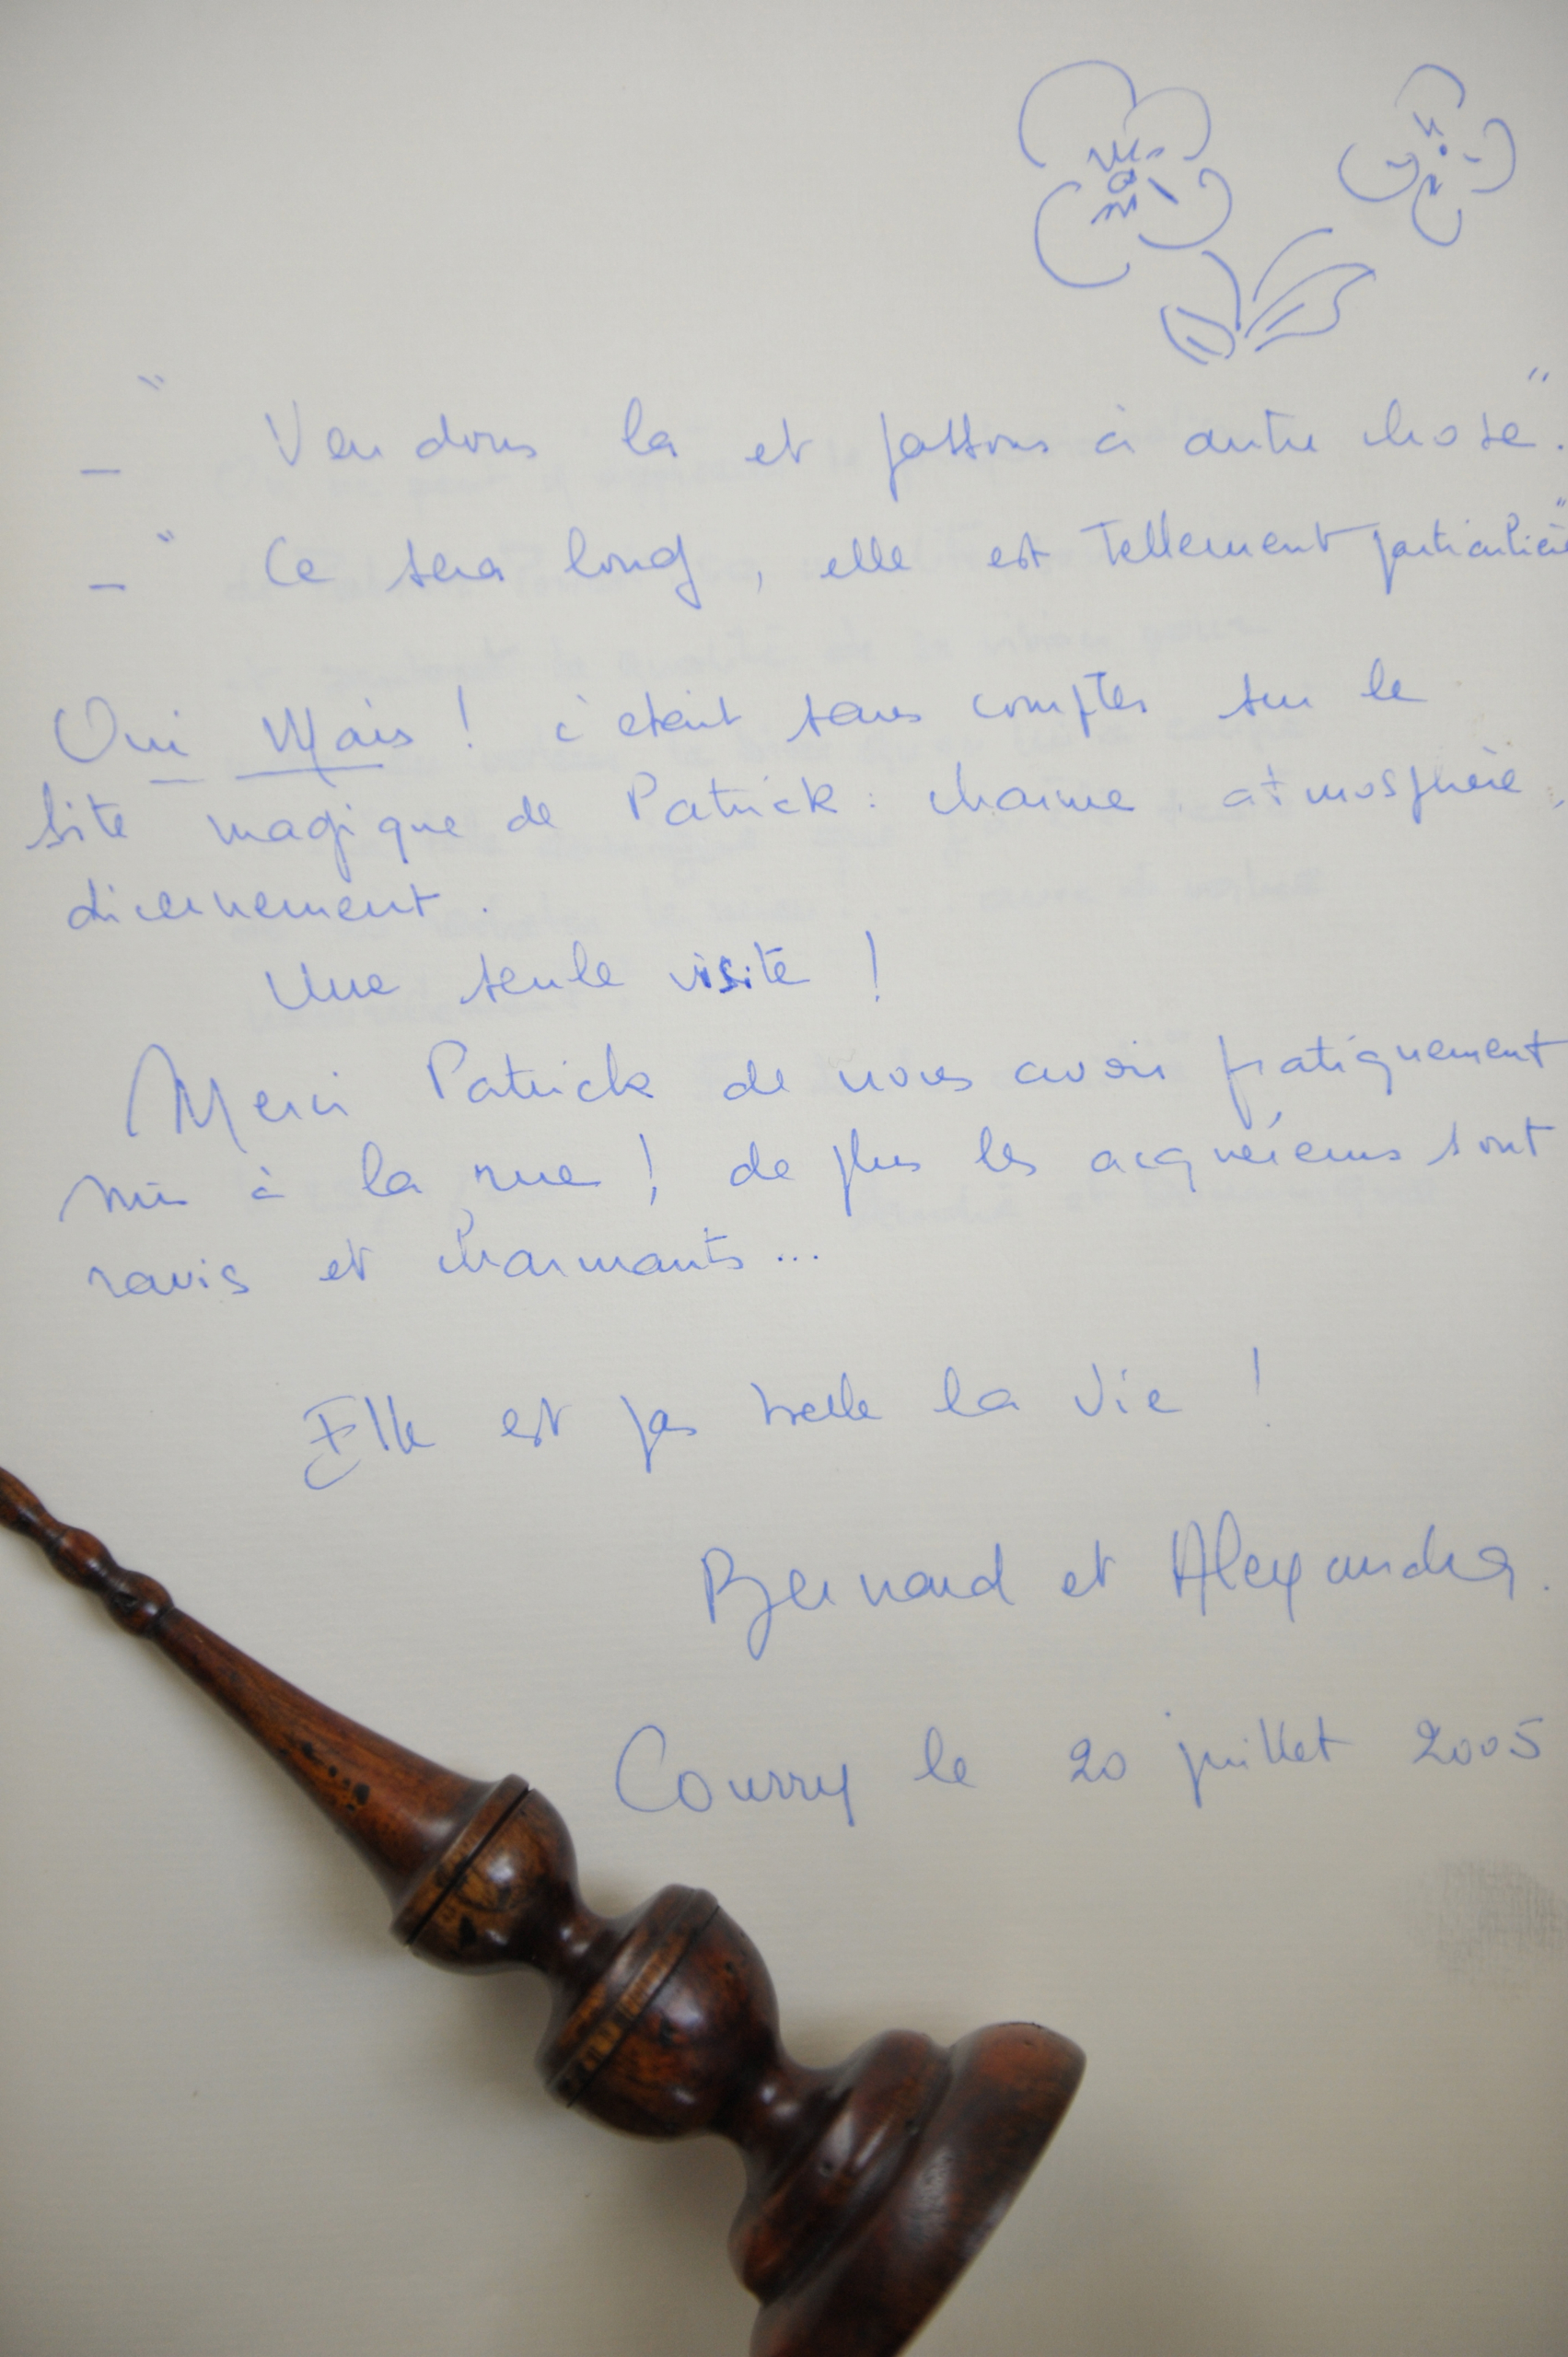 " Vendons la et passons à autre chose".
" Ce sera long, elle est tellement particulière"
Oui Mais ! c'etait sans compter sur le
site magique de Patrick : charme, atmosphère,
dicernement.
Une seule visite !
Merci Patrick de nous avoir pratiquement
mis à la rue ! de plus les acquéreurs sont
ravis et charmants...
Elle est pas belle la vie !
Bernard et Alexandra.
Courry le 20 juillet 2005